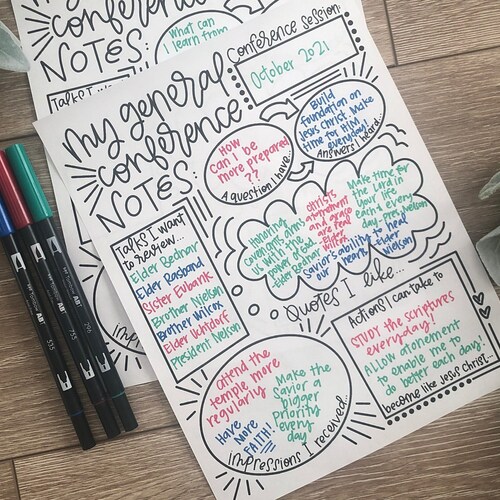 my general
conference
NOTES:
Talks I w
What can
I learn from
my general
conference
NOTES:
Conference session:
October 2021
How
can I be
more prepared
??
A question I have...
Build
foundation on
Jesus Christ. Make
time for HIM
everyday!
Answers I heard...
Talks I want
to review...
Elder Bednar
Elder Rasband
Sister Eubank
Brother Nielson
Brother Wilcox
Elder Uchtdorf
President Nelson
Honoring
covenants arms
us with the
power of God
-Elder Bednar
CHRISTS
atonement
and grace
are real
-Elder
Wilcox
Make time for
the Lord in
your life
each & every
day. -Pres. Nelson
Savior's ability to heal
our hearts -Elder
Nielson
Quotes I like...
Attend the
temple more
regularly
Have More
FAITH!
Make the
Savior a
bigger
priority
every
day
Impressions I received...
Actions I can take to
STUDY the scriptures
everyday!
ALLOW atonement
to enable me to
do better each day.
become like Jesus Christ...
Impressions
ABT
535
ABT
755
ABT
296